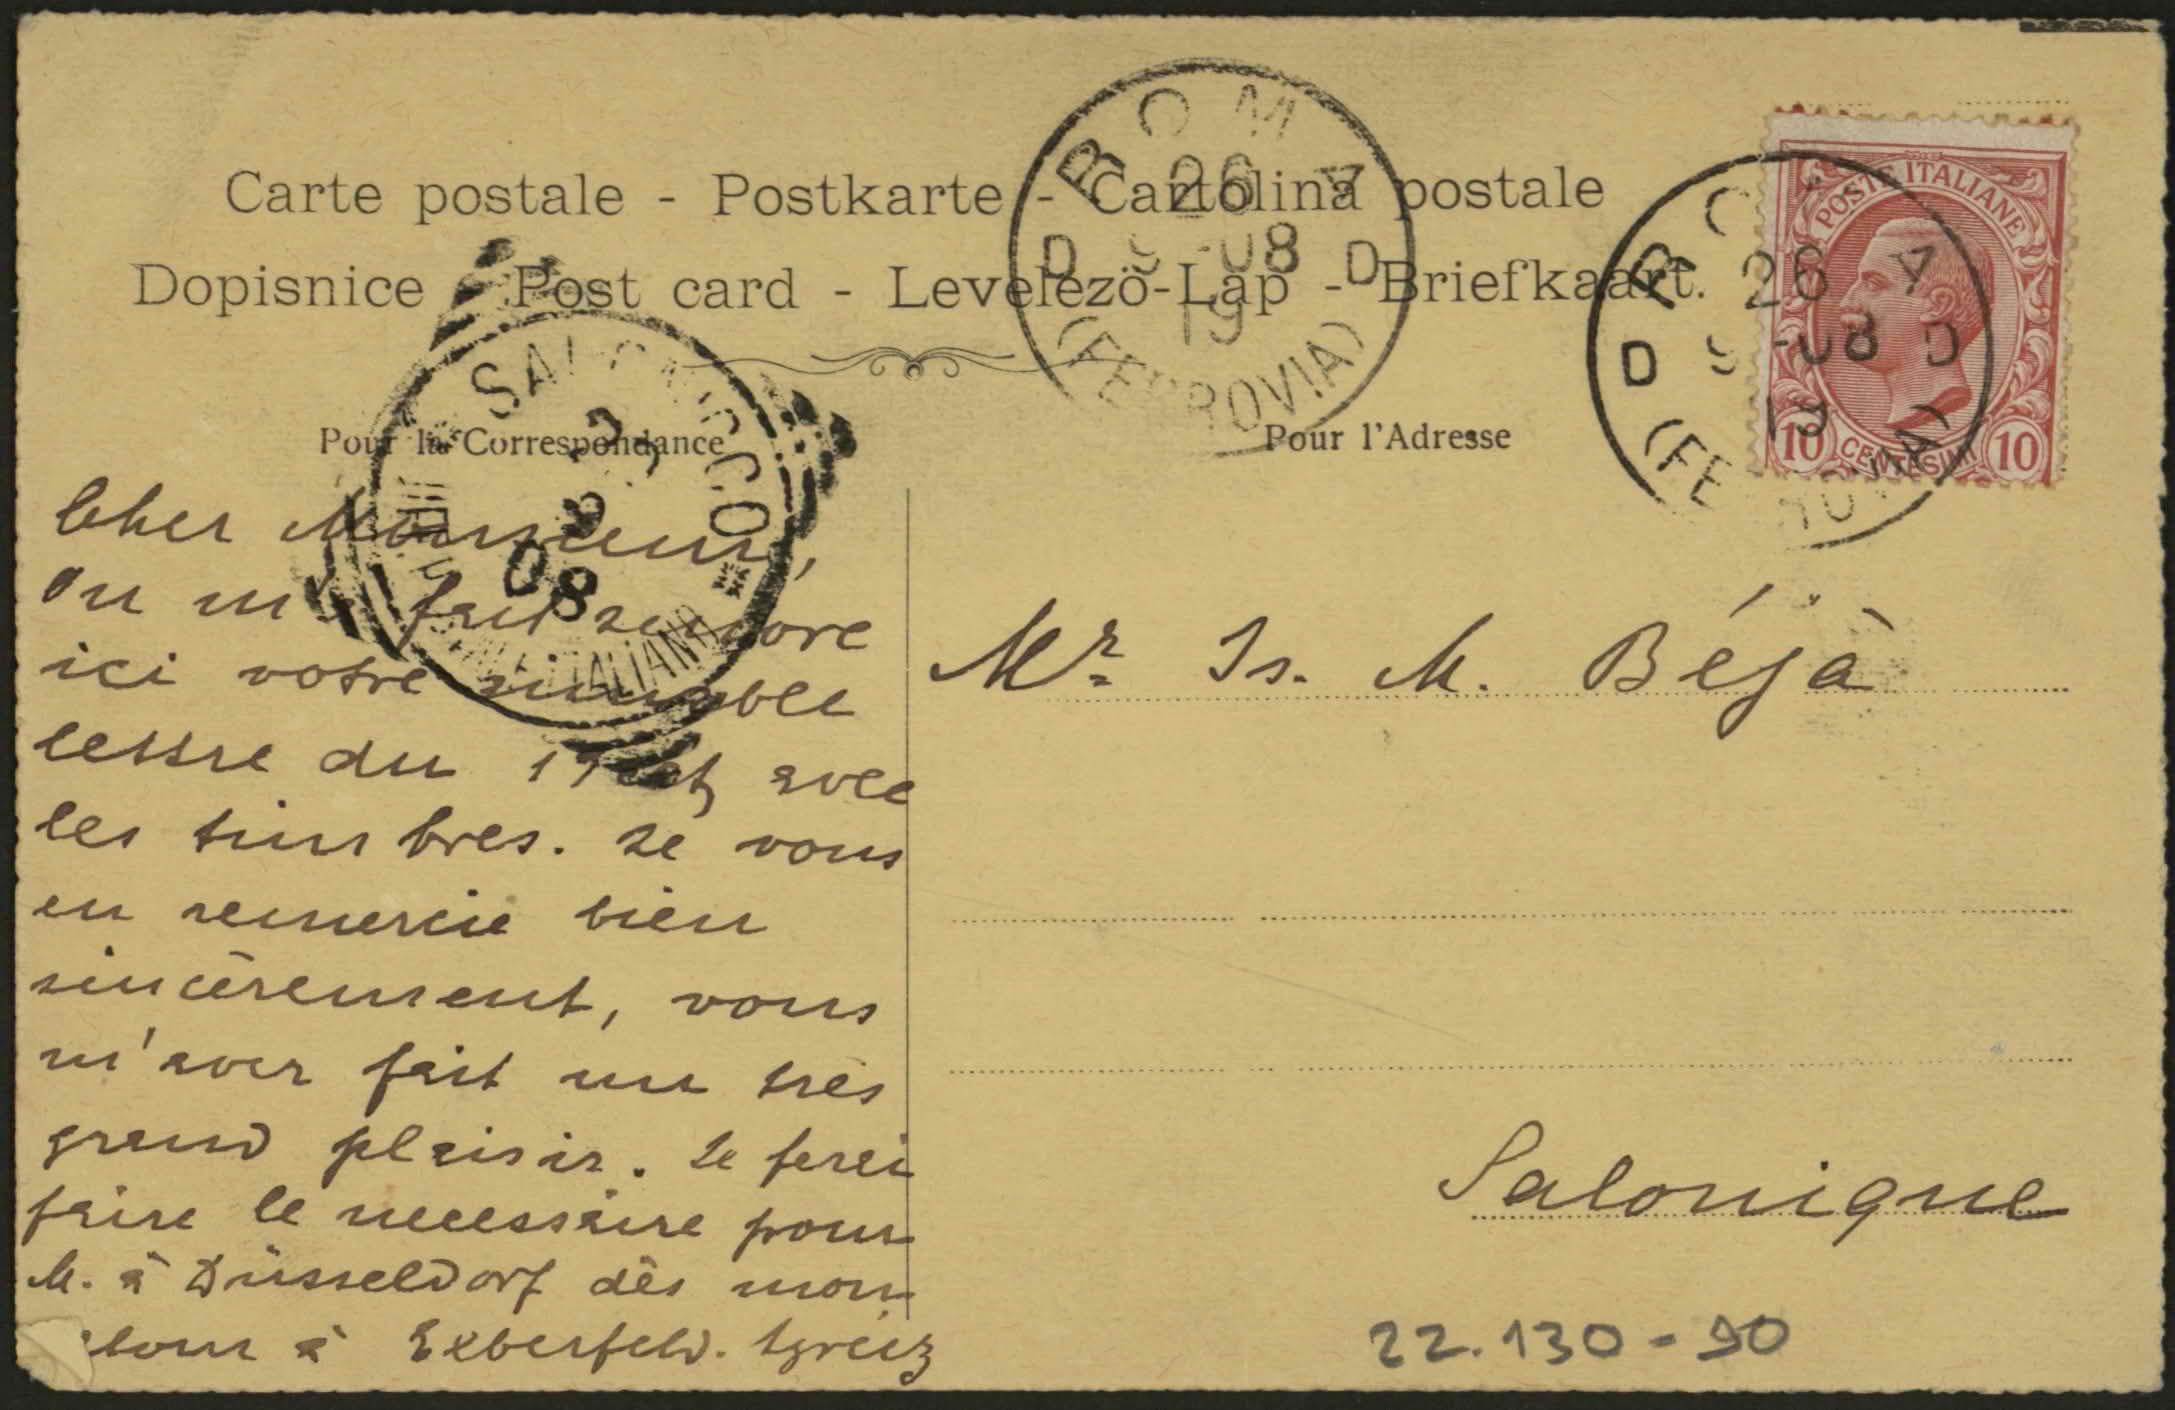 Carte postale - Postkarte - Cartolina postale
Dopisnice - Post card - Levelezö-Lap - Briefkaart.
ROMA
26
9-08
D D
19
(FERROVIA)
ROMA
26
9-08
D D
19
(FERROVIA)
POSTE ITALIANE
10 CENTESIMI 10
SALONICCO
9
08
ITALIANE
Pour la Correspondance
Pour l'Adresse
Cher Monsieur,
On m'a fait suivre
ici votre aimable
lettre du avec
les timbres. Je vous
en remercie bien
sincèrement, vous
m'avez fait un très
grand plaisir. Je ferai
faire le necessaire pour
M. à Düsseldorf dès mon
retour à Elberfeld. Agréez
Mr. Is. M. Béjà
Salonique
22.130-90